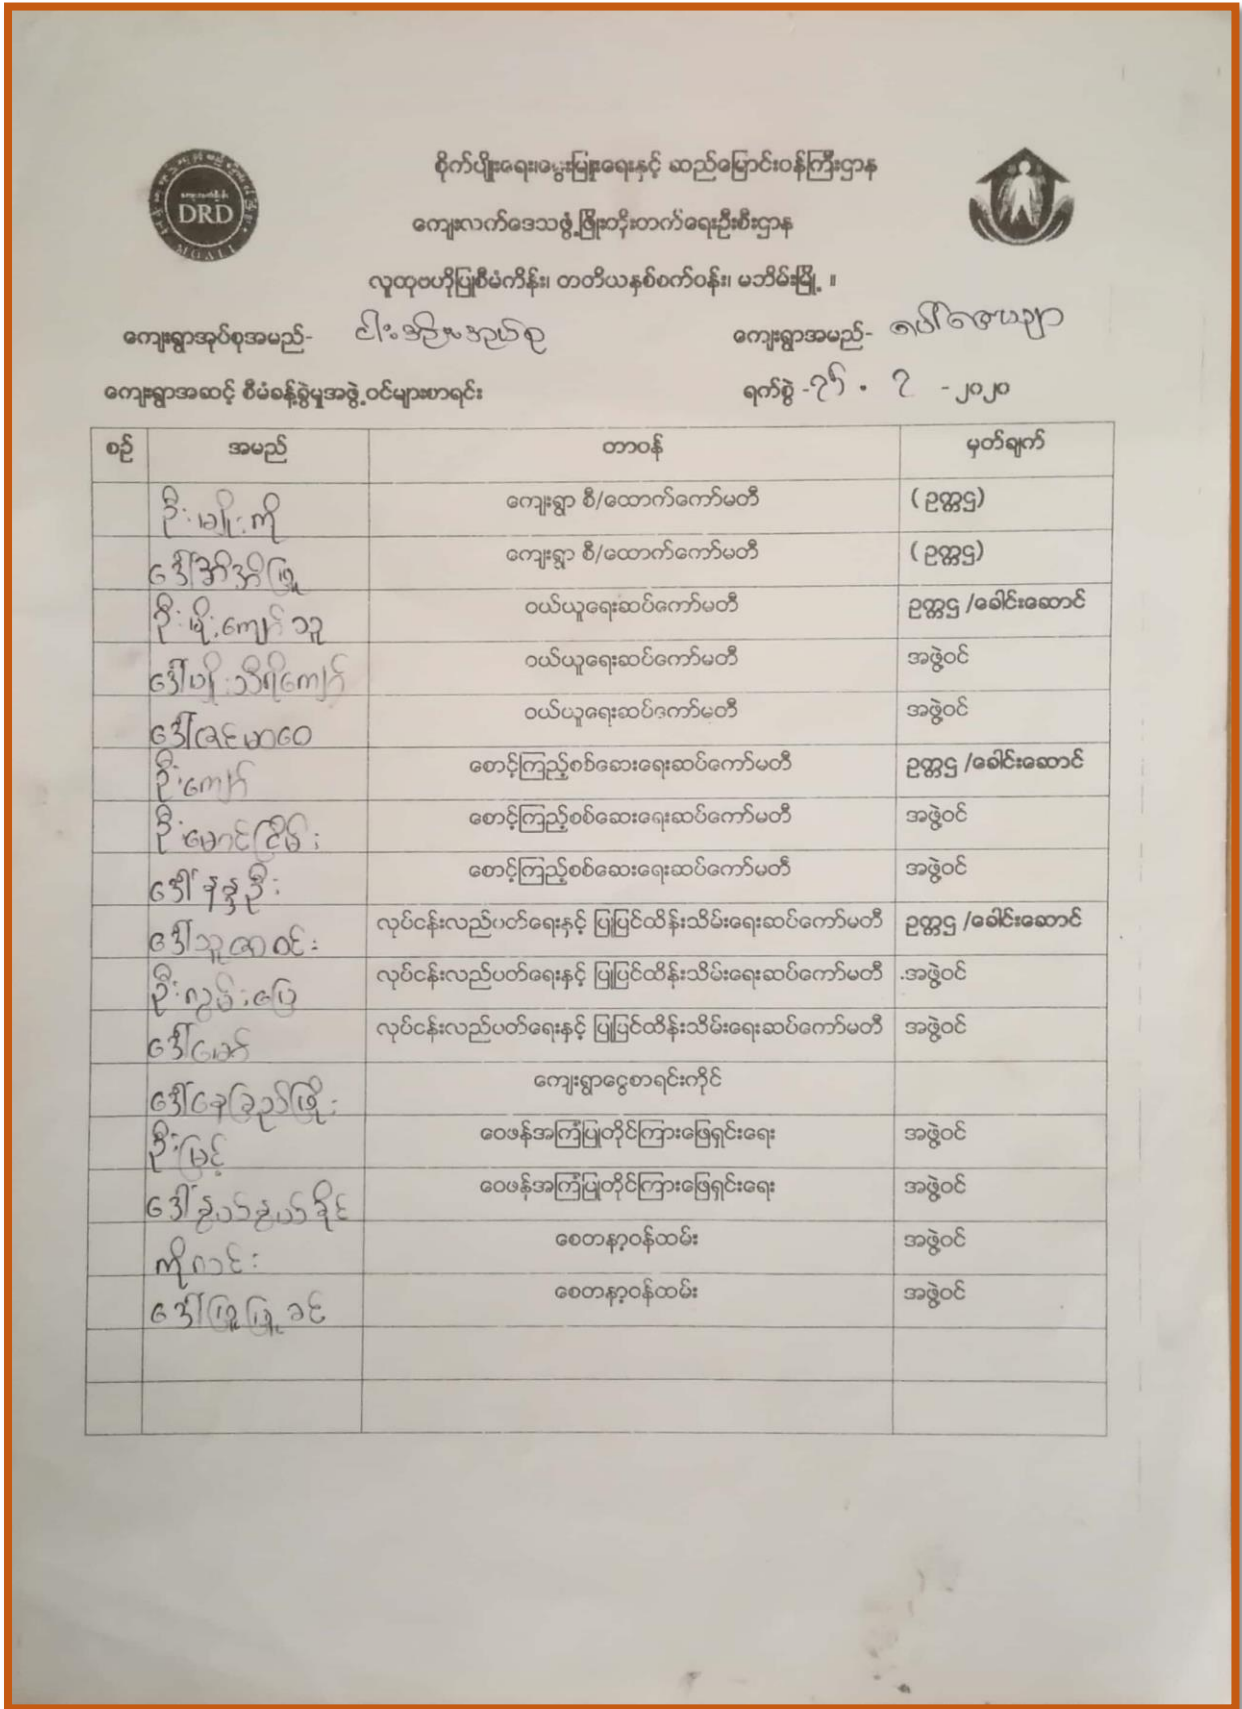 စိုက်ပျိုးရေး၊မွေးမြူရေးနှင့် ဆည်မြောင်းဝန်ကြီးဌာန
DRD
ကျေးလက်ဒေသဖွံ့ဖြိုးတိုးတက်ရေးဦးစီးဌာန
MOALI
လူထုဗဟိုပြုစီမံကိန်း၊ တတိယနှစ်စက်ဝန်း၊ မဘိမ်းမြို့ ။
ကျေးရွာအုပ်စုအမည်- ကျေးရွာအမည်-
ကျေးရွာအဆင့် စီမံခန့်ခွဲမှုအဖွဲ့ဝင်များစာရင်း ရက်စွဲ -၂၅ . ၇ -၂၀၂၀
စဉ် အမည် တာဝန် မှတ်ချက်
ဦးမျိုးကို ကျေးရွာ စီ/ထောက်ကော်မတီ (ဥက္ကဌ)
ဒေါ်အိအိဖြူ ကျေးရွာ စီ/ထောက်ကော်မတီ (ဥက္ကဌ)
ဦးမိုးကျော်သူ ဝယ်ယူရေးဆပ်ကော်မတီ ဥက္ကဌ /ခေါင်းဆောင်
ဒေါ်မျိုးသီရိကျော် ဝယ်ယူရေးဆပ်ကော်မတီ အဖွဲ့ဝင်
ဒေါ်ဇင်မာဝေ ဝယ်ယူရေးဆပ်ကော်မတီ အဖွဲ့ဝင်
ဦးကျော် စောင့်ကြည့်စစ်ဆေးရေးဆပ်ကော်မတီ ဥက္ကဌ /ခေါင်းဆောင်
ဦးမောင်ငြိမ်း စောင့်ကြည့်စစ်ဆေးရေးဆပ်ကော်မတီ အဖွဲ့ဝင်
ဒေါ်နန္ဒဦး စောင့်ကြည့်စစ်ဆေးရေးဆပ်ကော်မတီ အဖွဲ့ဝင်
ဒေါ်သူဇာဝင်း လုပ်ငန်းလည်ပတ်ရေးနှင့် ပြုပြင်ထိန်းသိမ်းရေးဆပ်ကော်မတီ ဥက္ကဌ /ခေါင်းဆောင်
ဦးလွမ်းပြေ လုပ်ငန်းလည်ပတ်ရေးနှင့် ပြုပြင်ထိန်းသိမ်းရေးဆပ်ကော်မတီ .အဖွဲ့ဝင်
ဒေါ်မော် လုပ်ငန်းလည်ပတ်ရေးနှင့် ပြုပြင်ထိန်းသိမ်းရေးဆပ်ကော်မတီ အဖွဲ့ဝင်
ဒေါ်နေခြည်ဖြိုး ကျေးရွာငွေစာရင်းကိုင်
ဦးမြင့် ဝေဖန်အကြံပြုတိုင်ကြားဖြေရှင်းရေး အဖွဲ့ဝင်
ဒေါ်နွယ်နွယ်ခိုင် ဝေဖန်အကြံပြုတိုင်ကြားဖြေရှင်းရေး အဖွဲ့ဝင်
ကိုလင်း စေတနာ့ဝန်ထမ်း အဖွဲ့ဝင်
ဒေါ်ဖြူဖြူခင် စေတနာ့ဝန်ထမ်း အဖွဲ့ဝင်